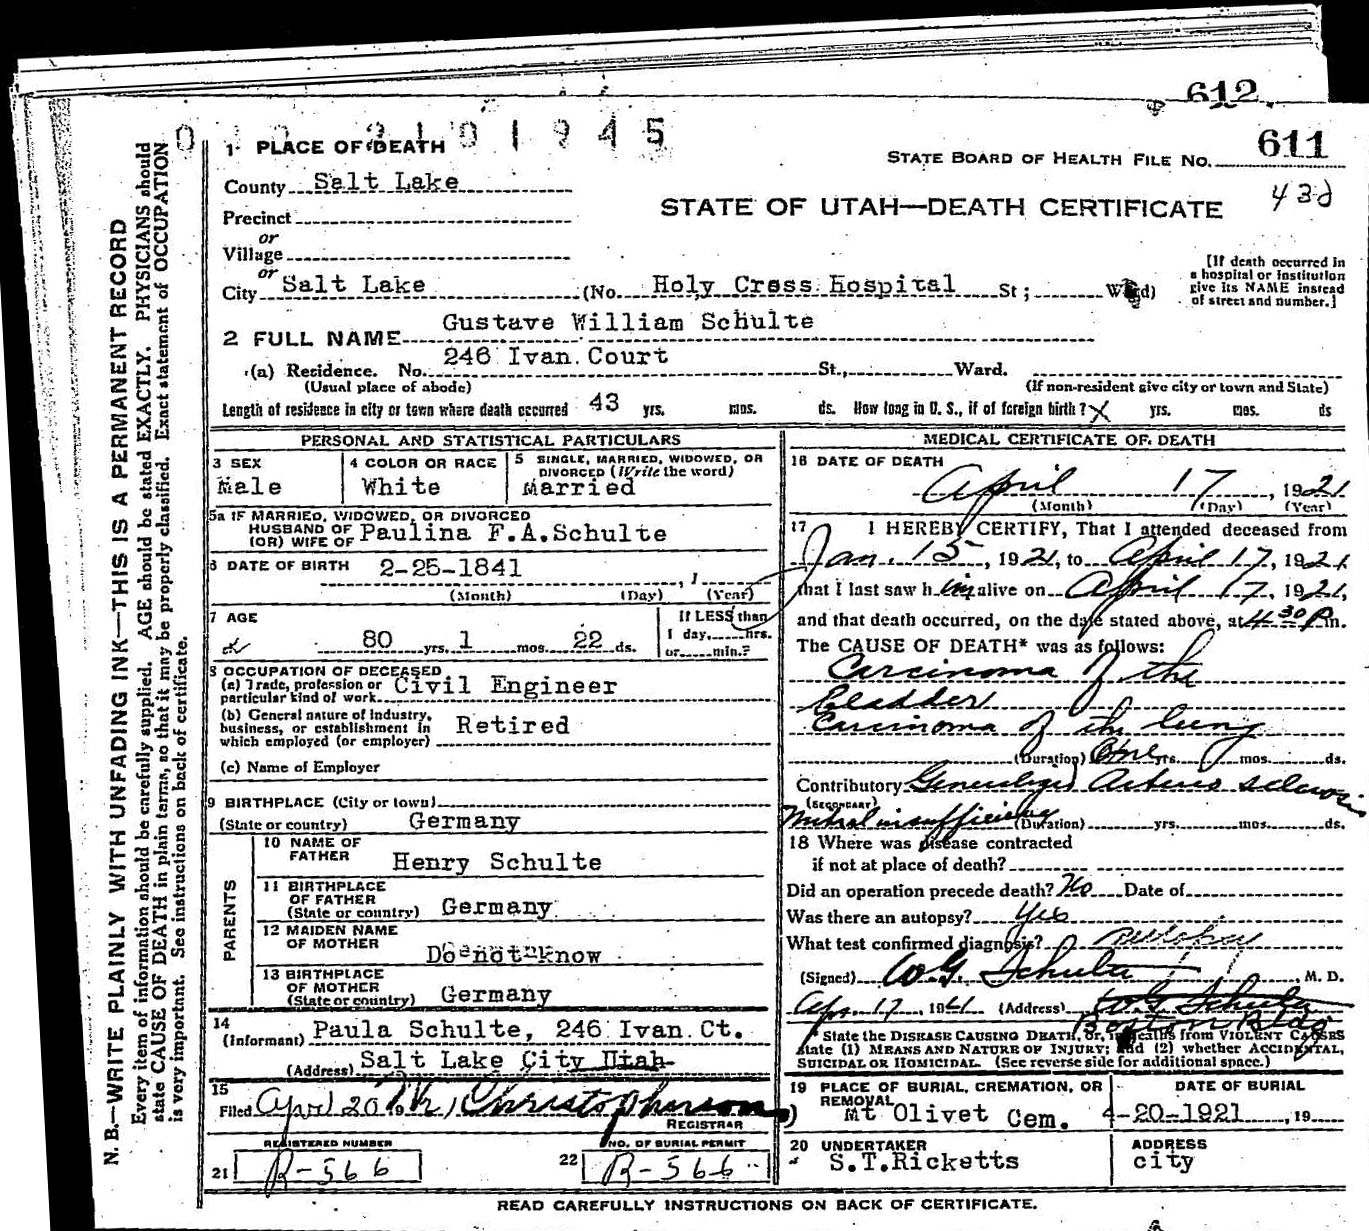 612
611
1 PLACE OF DEATH
STATE BOARD OF HEALTH FILE NO.
County Salt Lake
438
STATE OF UTAH—DEATH CERTIFICATE
Precinct
or
Village
or
City Salt Lake (No. Holy Cross Hospital St; Ward)
[If death occurred in
a hospital or institution
give its NAME instead
of street and number.]
2 FULL NAME Gustave William Schulte
(a) Residence. No. 246 Ivan Court St., Ward.
(Usual place of abode) (If non-resident give city or town and State)
Length of residence in city or town where death occurred 43 yrs. mos. ds. How long in U. S., if of foreign birth? X yrs. mos. ds
PERSONAL AND STATISTICAL PARTICULARS
3 SEX
Male
4 COLOR OR RACE
White
5 SINGLE, MARRIED, WIDOWED, OR
DIVORCED (Write the word)
Married
5a IF MARRIED, WIDOWED, OR DIVORCED
HUSBAND OF
(OR) WIFE OF Paulina F.A.Schulte
6 DATE OF BIRTH 2-25-1841 , 1
(Month) (Day) (Year)
7 AGE
80 yrs. 1 mos. 22 ds.
If LESS than
1 day, hrs.
or min.?
8 OCCUPATION OF DECEASED
(a) Trade, profession or
particular kind of work Civil Engineer
(b) General nature of industry,
business, or establishment in
which employed (or employer) Retired
(c) Name of Employer
9 BIRTHPLACE (City or town)
(State or country) Germany
PARENTS
10 NAME OF
FATHER Henry Schulte
11 BIRTHPLACE
OF FATHER
(State or country) Germany
12 MAIDEN NAME
OF MOTHER Do not know
13 BIRTHPLACE
OF MOTHER
(State or country) Germany
14
(Informant) Paula Schulte, 246 Ivan Ct.
(Address) Salt Lake City Utah
15
Filed April 20 19 Christopherson
REGISTRAR
REGISTERED NUMBER
21 R-566
NO. OF BURIAL PERMIT
22 R-566
MEDICAL CERTIFICATE OF DEATH
16 DATE OF DEATH
April 17, 1921
(Month) (Day) (Year)
17 I HEREBY CERTIFY, That I attended deceased from
Jan. 15, 1921, to April 17, 1921
that I last saw him alive on April 17, 1921,
and that death occurred, on the date stated above, at 4 30 P m.
The CAUSE OF DEATH* was as follows:
Carcinoma of the
bladder
Carcinoma of the lung
(Duration) One yrs. mos. ds.
Contributory Generalized Arterio sclerosis
(SECONDARY)
Mitral insufficiency (Duration) yrs. mos. ds.
18 Where was disease contracted
if not at place of death?
Did an operation precede death? No Date of
Was there an autopsy? Yes
What test confirmed diagnosis?
(Signed) W.G. Schulte, M. D.
Apr. 17, 1921 (Address) W.G. Schulte
Boston Bldg
*State the DISEASE CAUSING DEATH, or, in deaths from VIOLENT CAUSES
state (1) MEANS AND NATURE OF INJURY; and (2) whether ACCIDENTAL,
SUICIDAL OR HOMICIDAL. (See reverse side for additional space.)
19 PLACE OF BURIAL, CREMATION, OR
REMOVAL
Mt Olivet Cem.
DATE OF BURIAL
4-20-1921, 19
20 UNDERTAKER
S.T.Ricketts
ADDRESS
city
READ CAREFULLY INSTRUCTIONS ON BACK OF CERTIFICATE.
N. B.—WRITE PLAINLY WITH UNFADING INK—THIS IS A PERMANENT RECORD
Every item of information should be carefully supplied. AGE should be stated EXACTLY. PHYSICIANS should
state CAUSE OF DEATH in plain terms, so that it may be properly classified. Exact statement of OCCUPATION
is very important. See instructions on back of certificate.